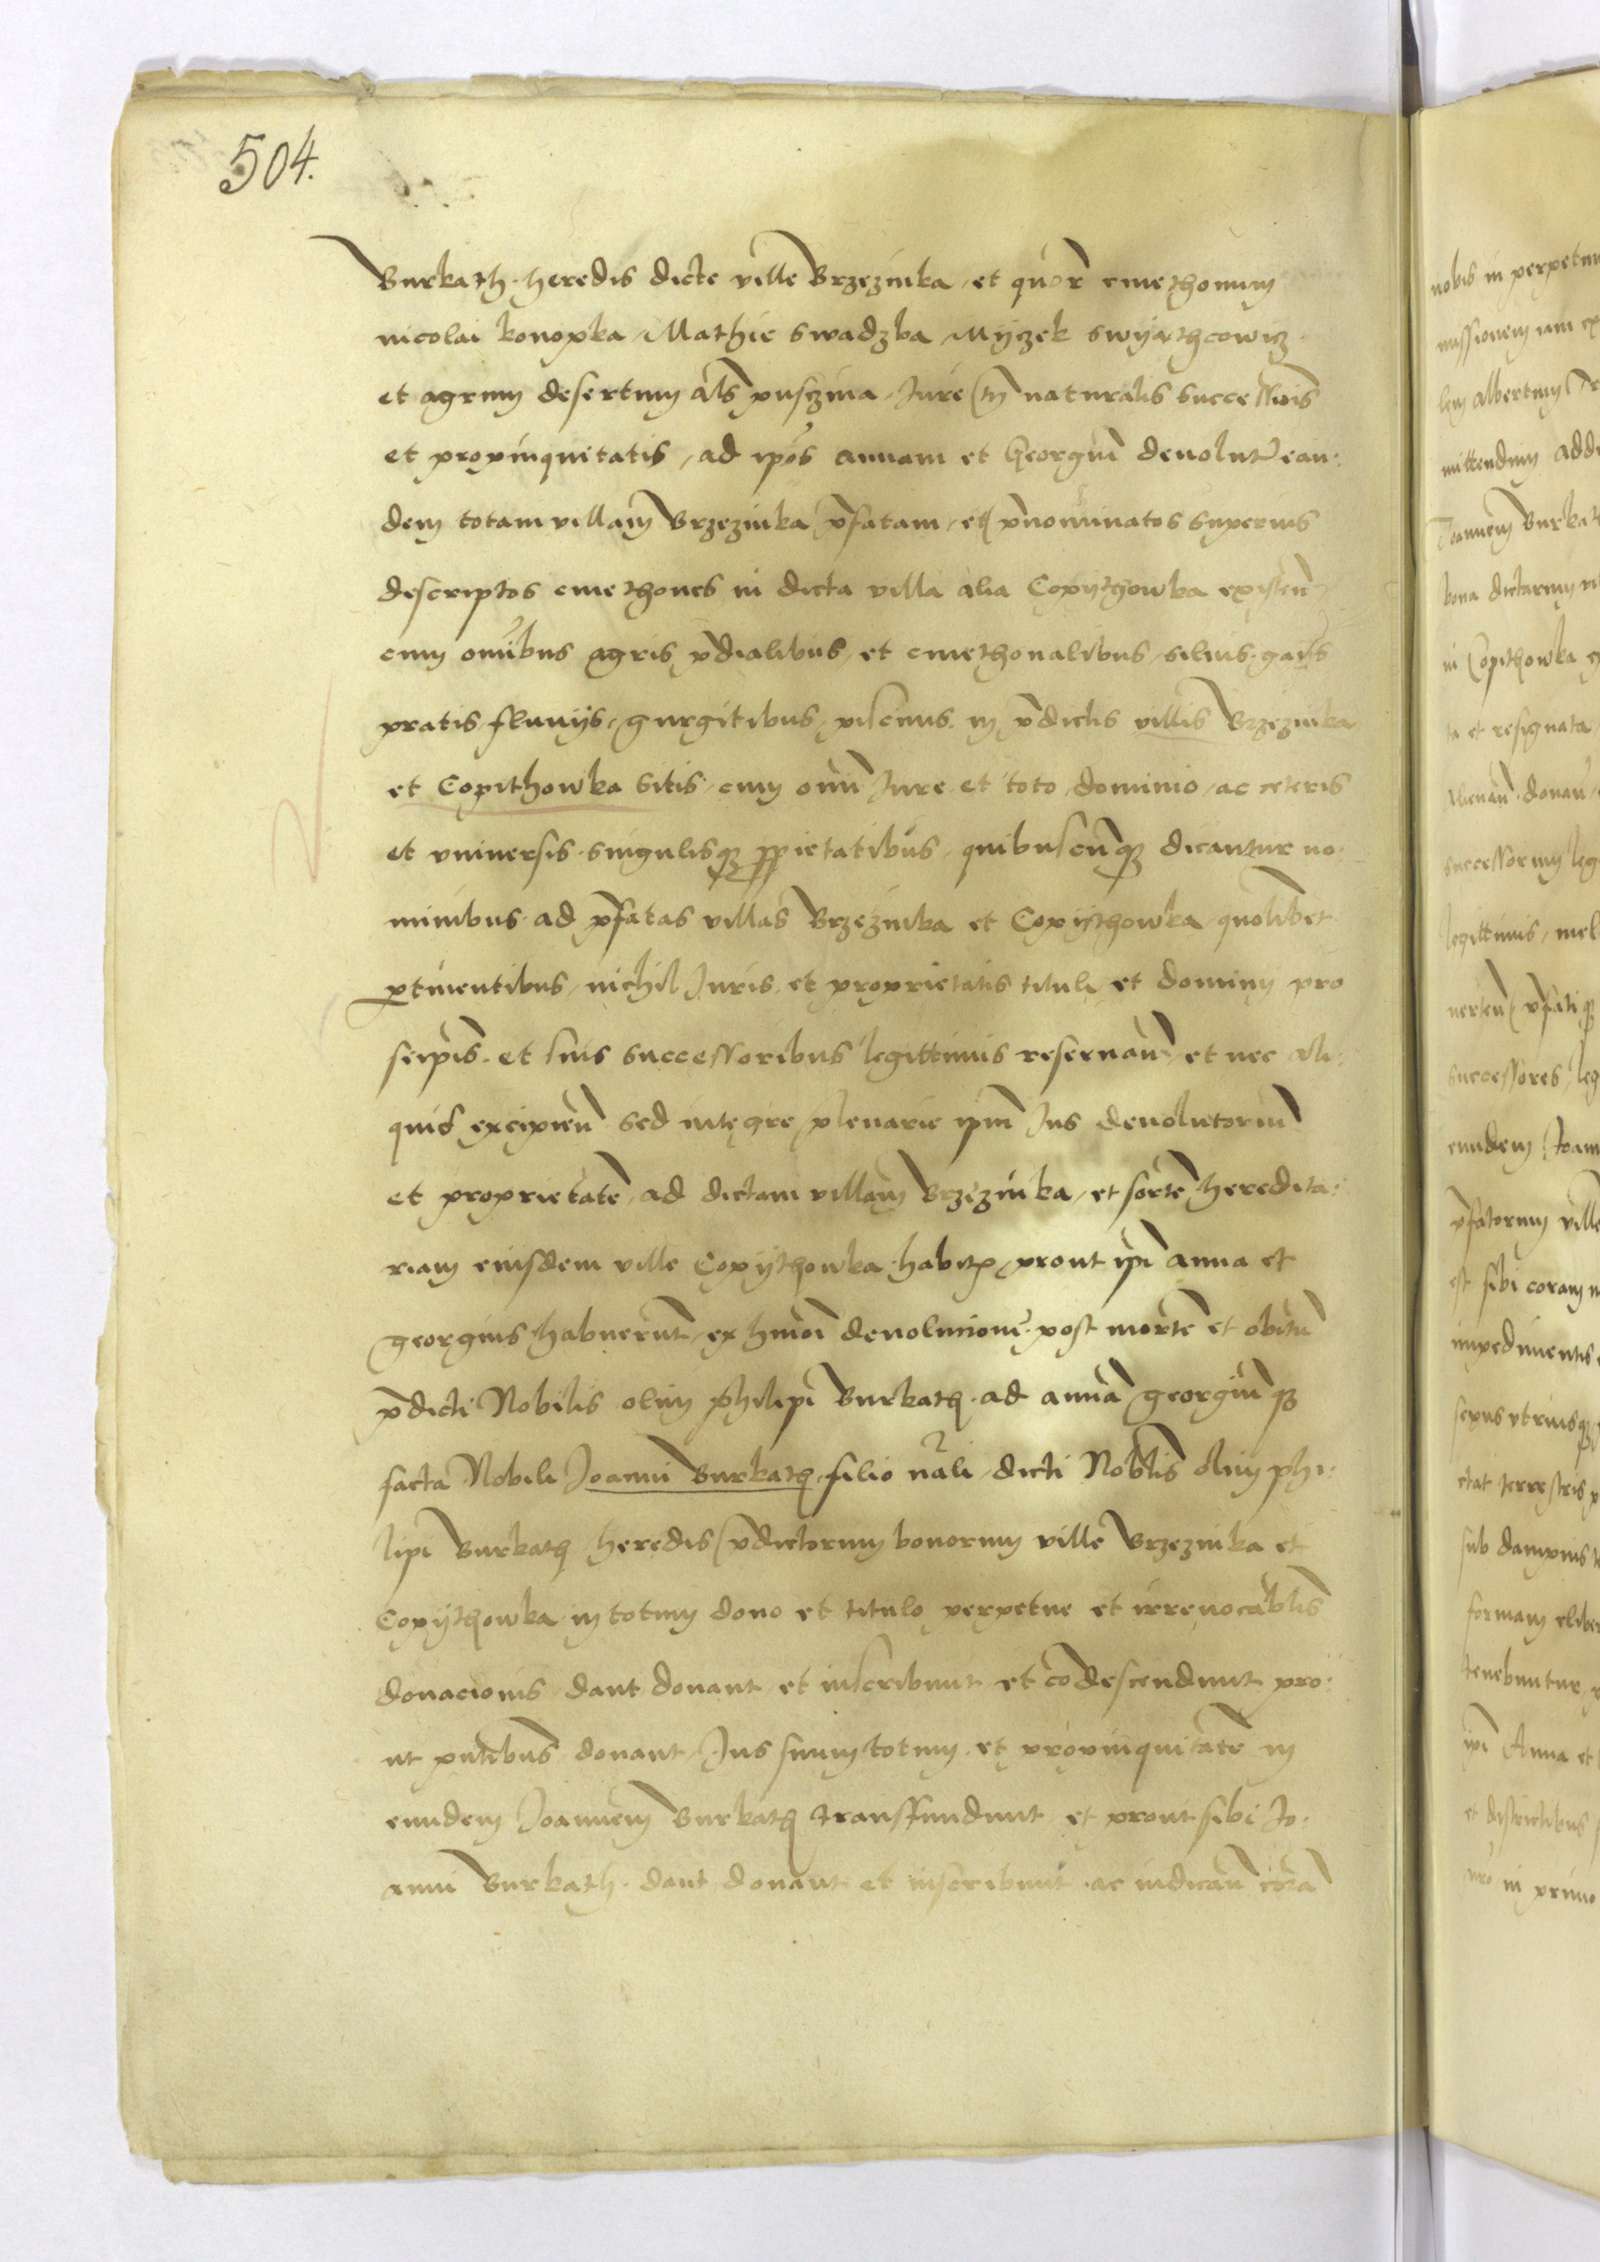 504.
Burkath heredis dicte ville Brzezinka et quor cmethonum
nicolai konopka Mathie swadzba Myczek swyathcowicz
et agrum desertum als pusczina Jure tn naturalis successiois
et propinquitatis, ad ipos annam et Georgiu deuolut ean:
dem totam villam Brzezinka pfatam, et pnominatos superius
descriptos cmethones in dicta villa alia Copythowka existen
cum omibus agris pdialibus, et cmethonalibus siluis gais
pratis fluuijs, gurgitibus, piscinis in pdictis villis Brzezinka
et Copithowka sitis cum omi Jure et toto dominio ac ceteris
et vniuersis singulisq ppietatibus quibuscunq dicantur no:
minibus ad pfatas villas Brzezinka et Copythowka quolibet
ptinentibus, nichil Juris et proprietatis tituli et dominij pro
seipis et suis successoribus legittimis reseruan et nec ali:
quid excipien sed integre plenarie ipm Jus deuolutoriu
et proprietate ad dictam villam Brzezinka, et sorte heredita:
riam eiusdem ville Copythowka habit prout ipi anna et
georgius habuerunt ex hmoi deuolucione post morte et obitu
pdicti Nobilis olim philipi Burkath ad anna georgiu q
facta Nobili Joanni Burkath filio nali dicti Noblis olim phi:
lipi Burkath heredis pdictorum bonorum ville Brzezinka et
Copythowka in totum dono et titulo perpetue et irreuocablis
donacionis dant donant et inscribunt et codescendunt pro:
ut pntibus donant Jus suum totum et propinquitate in
eundem Joannem Burkath transffundunt et prout sibi Jo:
anni Burkath dant donant et inscribunt ac indican cora
nobis in perpetuu
lem albertum
mittendum
Joannem Burka
bona dictarum
in Copithowka
ta et resignata
Alienan donan
successorum leg
legittimis, mel
pfatiq
successores leg
eundem Joan
pfatorum ville
est sibi coram
impedimentis
sexus vtriusq
terrestris
sub dampnis
formam
tenebuntur
ipi Anna et
et districtibus
in primo